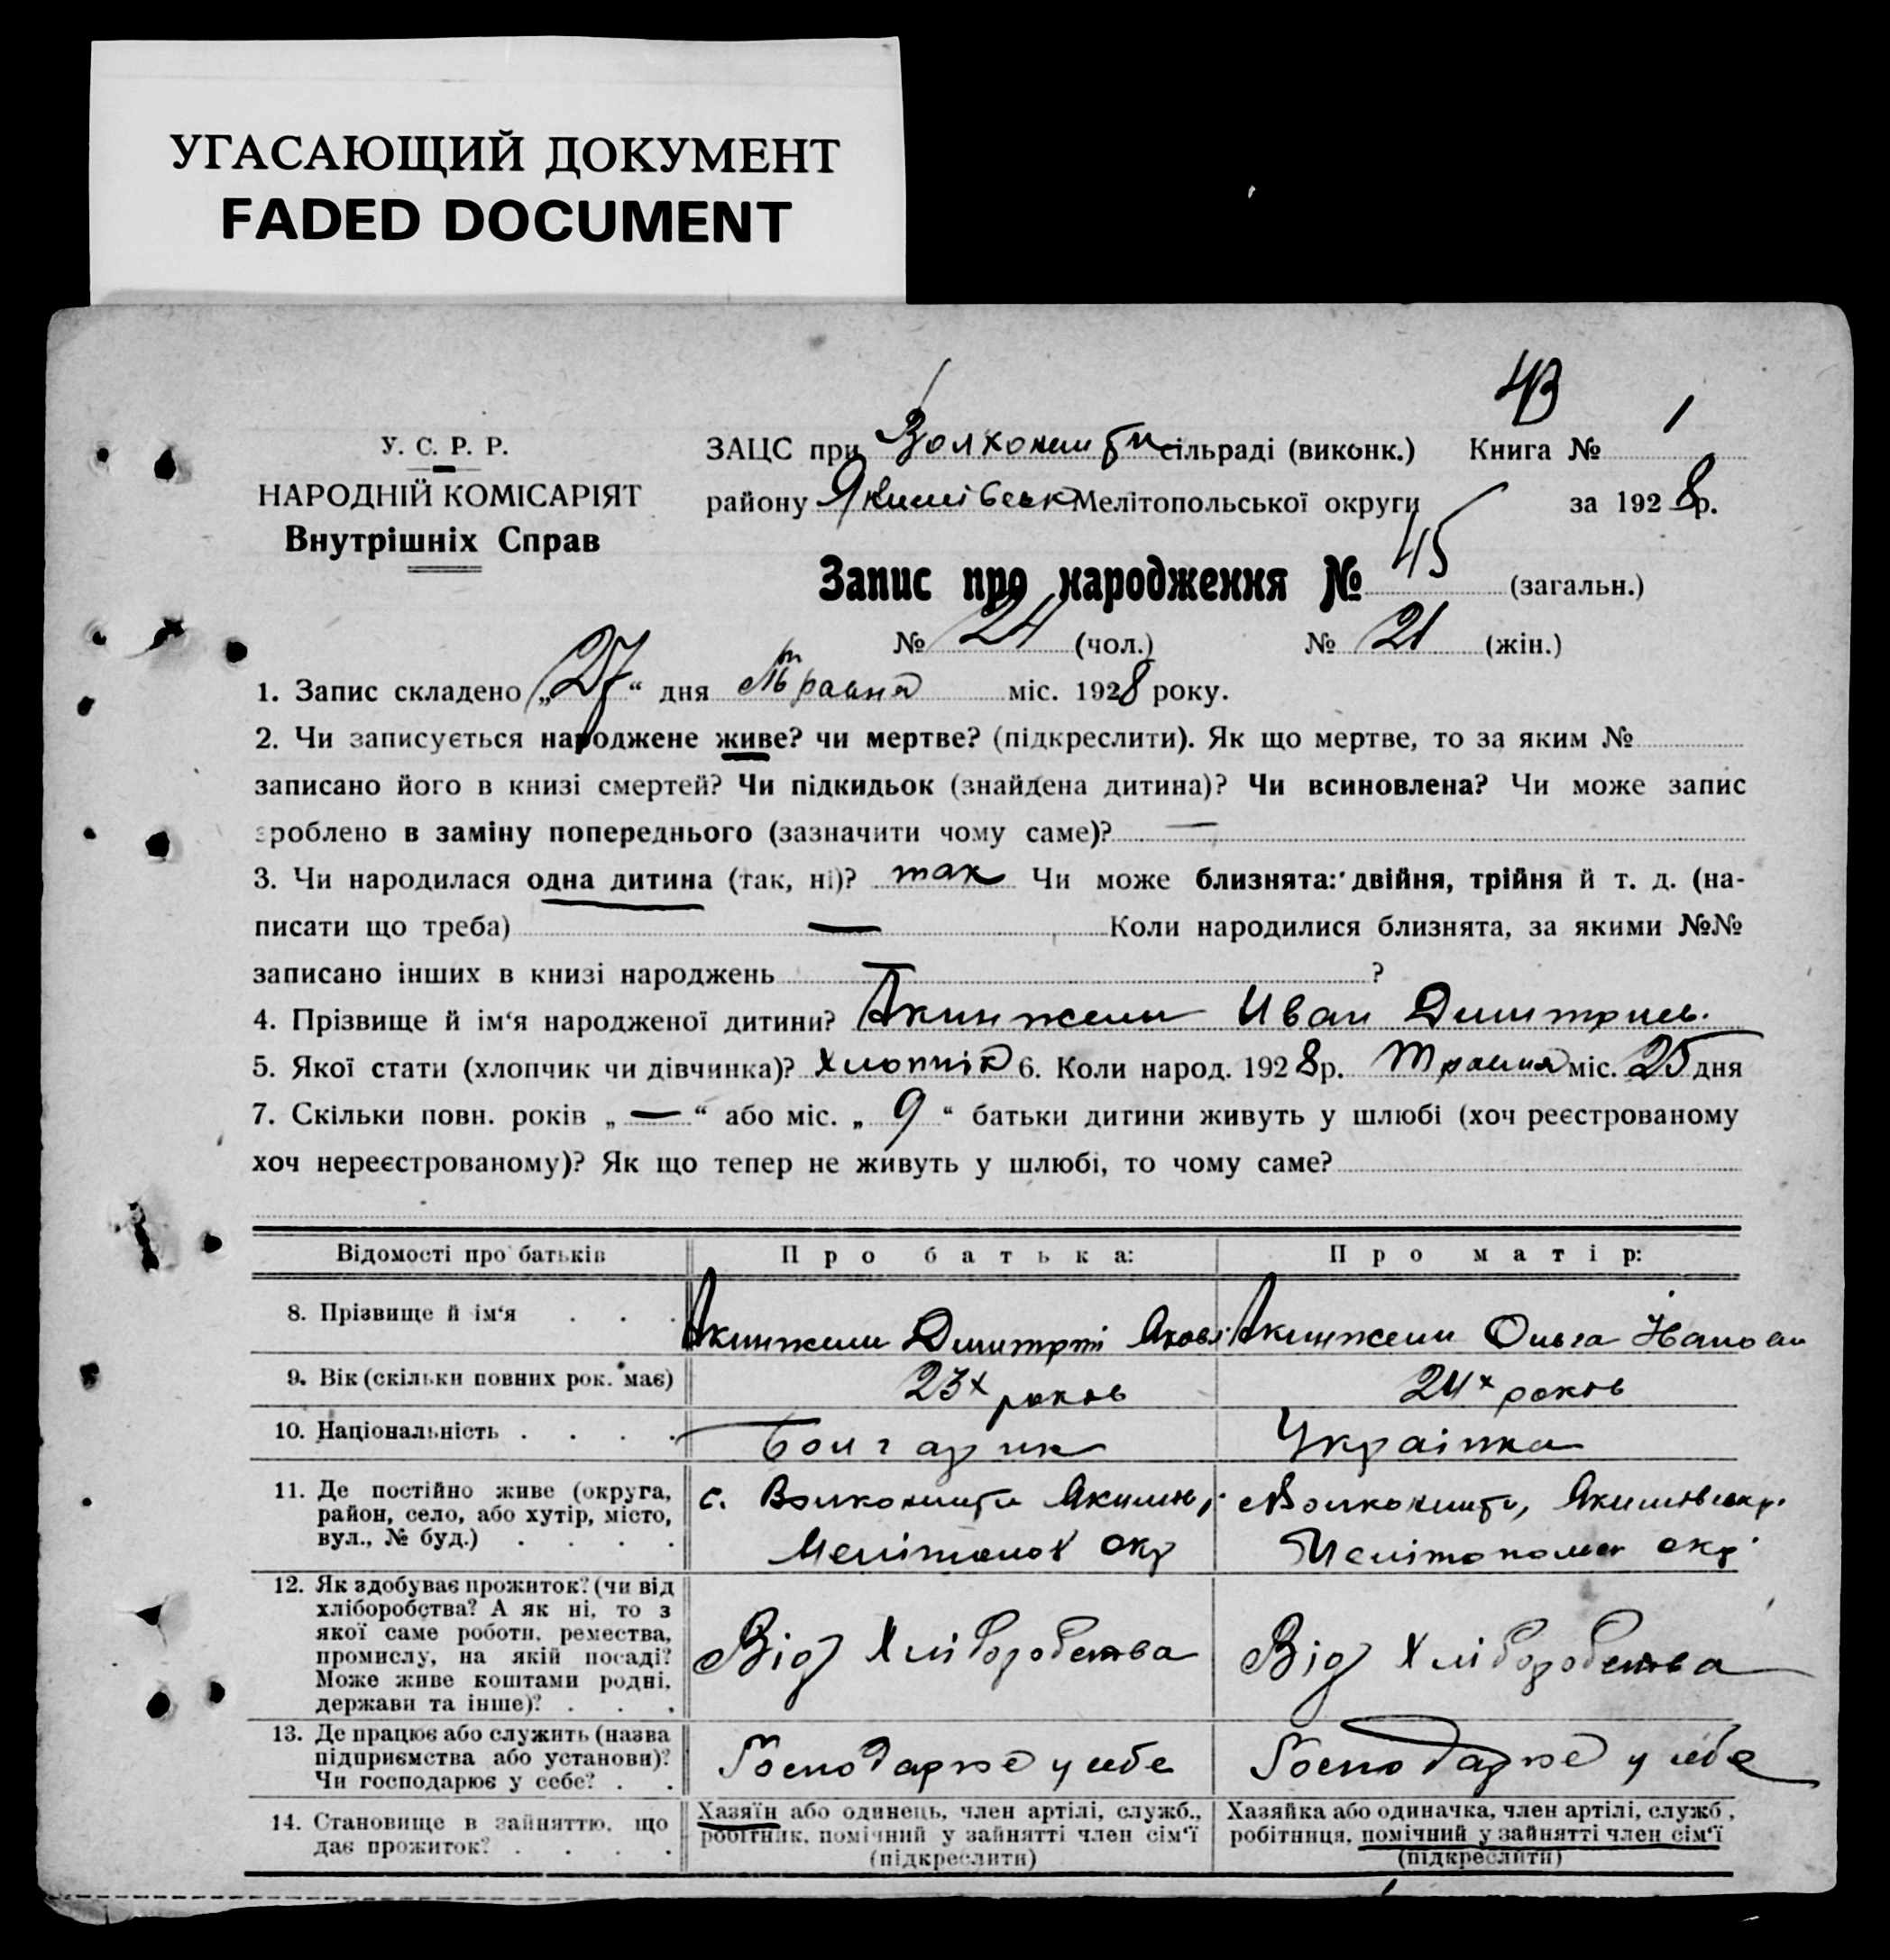 УГАСАЮЩИЙ ДОКУМЕНТ
FADED DOCUMENT
43
У. С. Р. Р.
НАРОДНІЙ КОМІСАРІЯТ
Внутрішніх Справ
ЗАЦС при сільраді (виконк.) Книга № 1
району Якимівськ Мелітопольської округи за 1928 р.
Запис про народження № 45 (загальн.)
№ 24 (чол.) № 21 (жін.)
1. Запис складено „27“ дня Травня міс. 1928 року.
2. Чи записується народжене живе? чи мертве? (підкреслити). Як що мертве, то за яким №
записано його в книзі смертей? Чи підкидьок (знайдена дитина)? Чи всиновлена? Чи може запис
зроблено в заміну попереднього (зазначити чому саме)? —
3. Чи народилася одна дитина (так, ні)? так Чи може близнята: двійня, трійня й т. д. (на-
писати що треба) — Коли народилися близнята, за якими №№
записано інших в книзі народжень — ?
4. Прізвище й ім‘я народженої дитини? Акинжели Иван Дмитриев.
5. Якої стати (хлопчик чи дівчинка)? Хлопчік 6. Коли народ. 1928 р. Травня міс. 25 дня
7. Скільки повн. років „ — “ або міс. „ 9 “ батьки дитини живуть у шлюбі (хоч реєстрованому
хоч нереєстрованому)? Як що тепер не живуть у шлюбі, то чому саме?
Відомості про батьків Про батька: Про матір:
8. Прізвище й ім‘я . . . Акинжели Дмитрі Яковл. Акинжели Ольга
9. Вік (скільки повних рок. має) 23х роков 24х роков
10. Національність . . . . Болгарин Українка
11. Де постійно живе (округа,
район, село, або хутір, місто,
вул., № буд.) . . . .
с. Якимів р.
Мелітопол окр
Якимівськ р.
Мелітополь окр.
12. Як здобуває прожиток? (чи від
хліборобства? А як ні, то з
якої саме роботи, ремества,
промислу, на якій посаді?
Може живе коштами родні,
держави та інше)? . . .
Від Хліборобства
Від Хліборобства
13. Де працює або служить (назва
підприємства або установи)?
Чи господарює у себе? . .
Господарює у себе
Господарює у себе
14. Становище в зайняттю, що
дає прожиток? . . . .
Хазяїн або одинець, член артілі, служб.,
робітник, помічний у зайнятті член сім‘ї
(підкреслити)
Хазяйка або одиначка, член артілі, служб.,
робітниця, помічний у зайнятті член сім‘ї
(підкреслити)